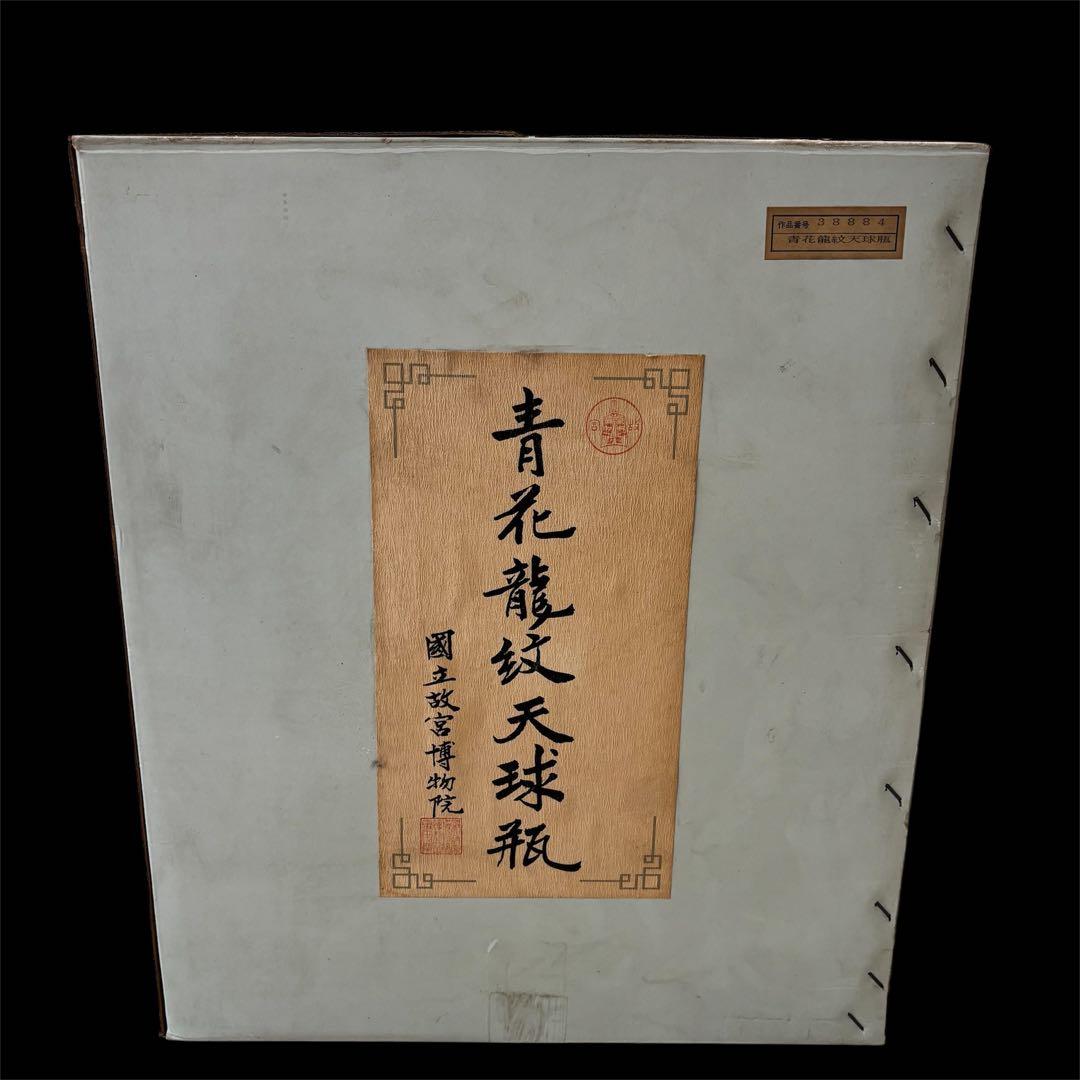 作品番号 38884
青花龍紋天球瓶
青花龍紋天球瓶
國立故宮博物院